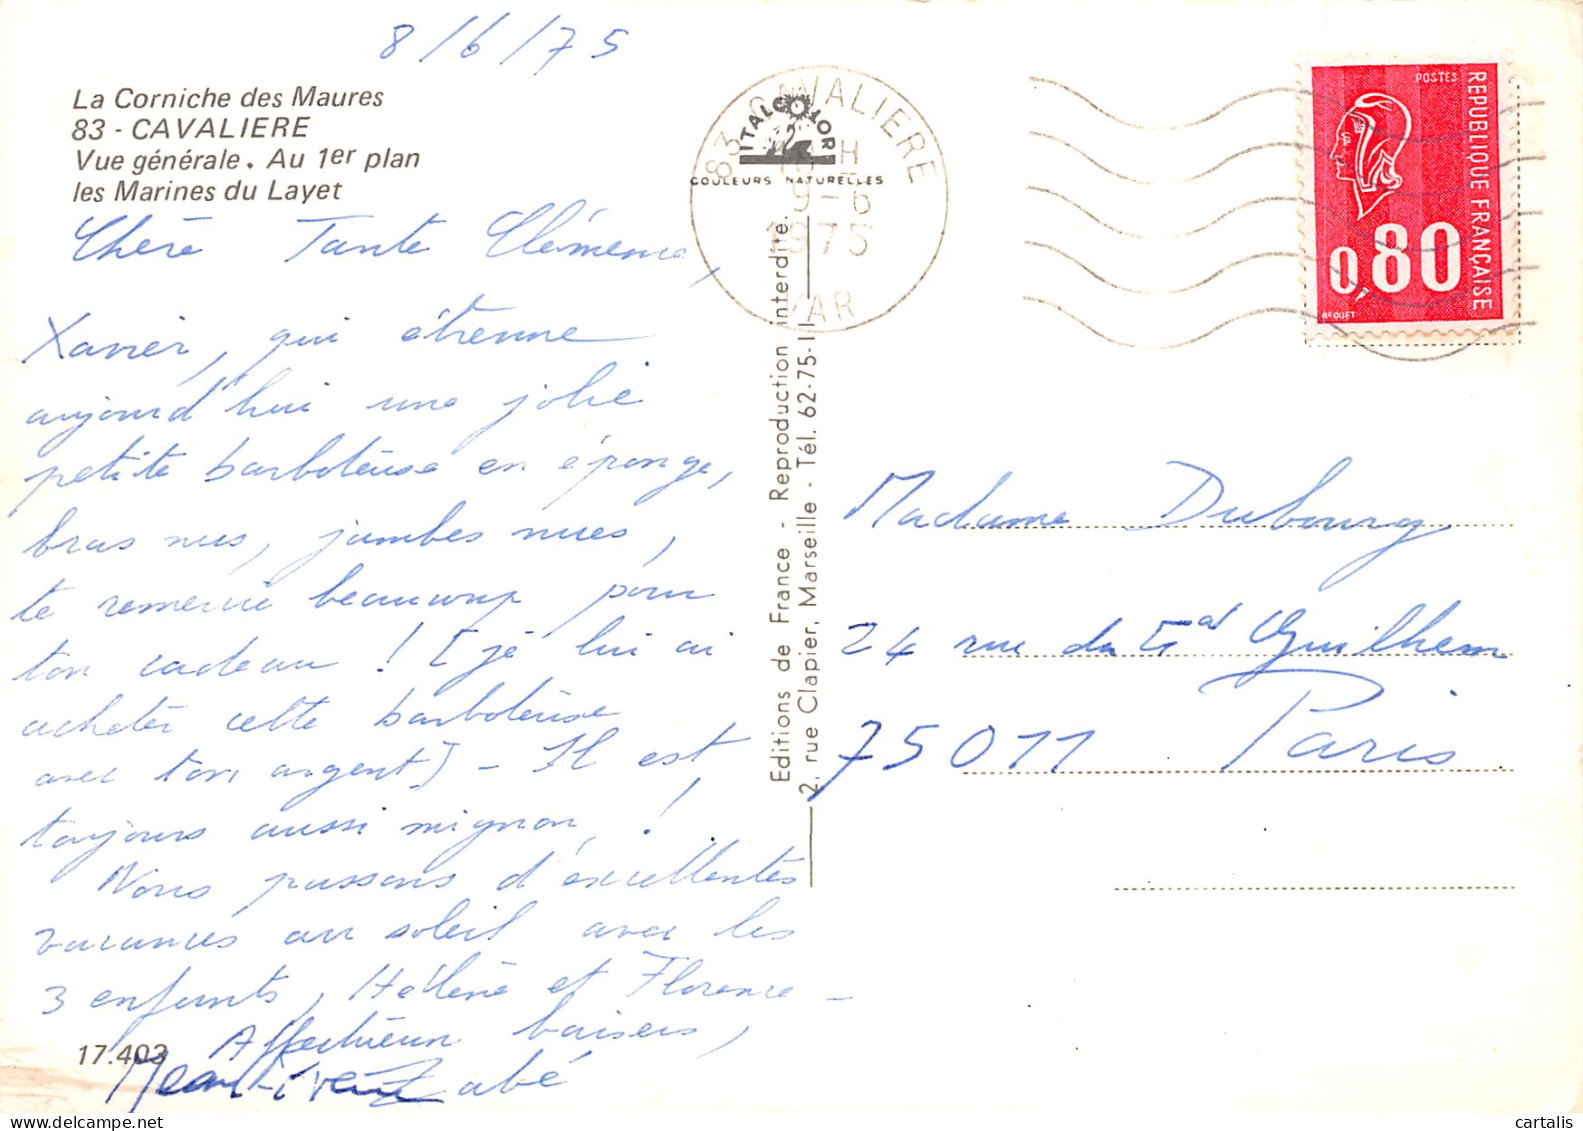 8/6/75
La Corniche des Maures
83 - CAVALIERE
Vue générale. Au 1er plan
les Marines du Layet
Chère Tante Clémence,
Xavier, qui étrenne
aujourd'hui une jolie
petite barboteuse en éponge,
bras nus, jambes nues,
te remercie beaucoup pour
ton cadeau ! [je lui ai
acheter cette barboteuse
avec ton argent] - Il est
toujours aussi mignon !
Nous passons d'excellentes
vacances au soleil avec les
3 enfants, Hélène et Florence -
Affectueux baisers,
17.403
83 CAVALIERE
H
9-6
1975
VAR
ITALCOLOR
COULEURS NATURELLES
Editions de France - Reproduction interdite.
2, rue Clapier, Marseille - Tél. 62-75-11
POSTES
REPUBLIQUE FRANÇAISE
0,80
BEQUET
Madame Dubourg
24 rue du Gal Guilhem
75011 Paris
www.delcampe.net
cartalis